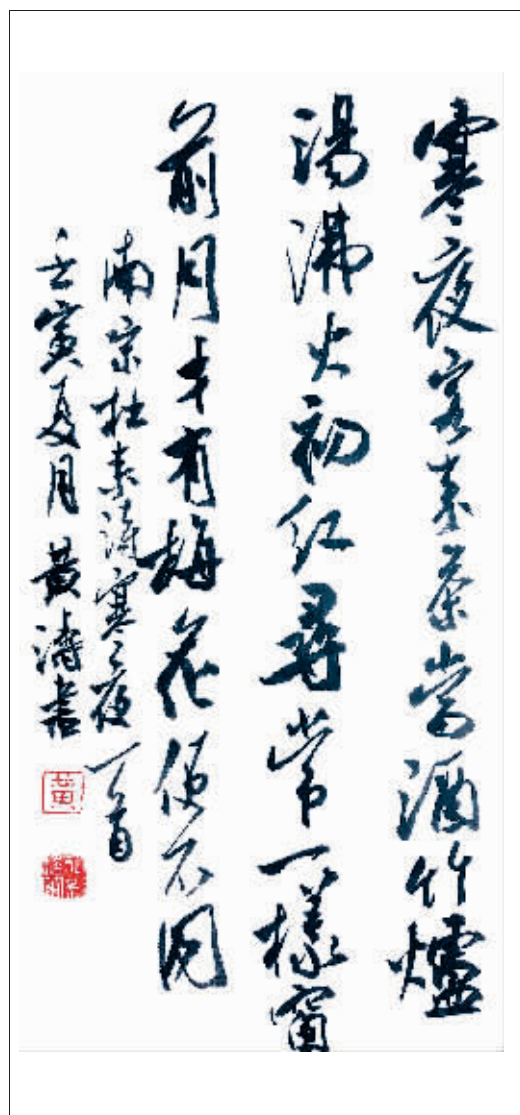 寒夜客来茶當酒竹爐
湯沸火初红尋常一樣窗
前月才有梅花便不同
南宋杜耒詩寒夜一首
壬寅夏月黄濤書
黄